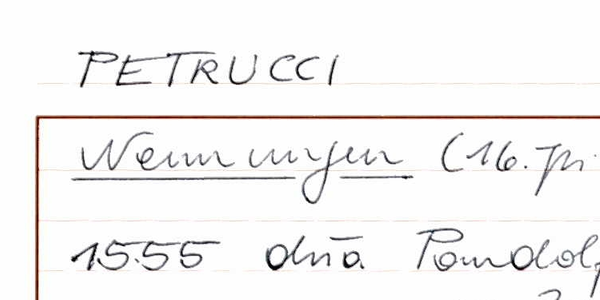 PETRUCCI
Nennungen (16. Jh.
1555 dña Pandolf